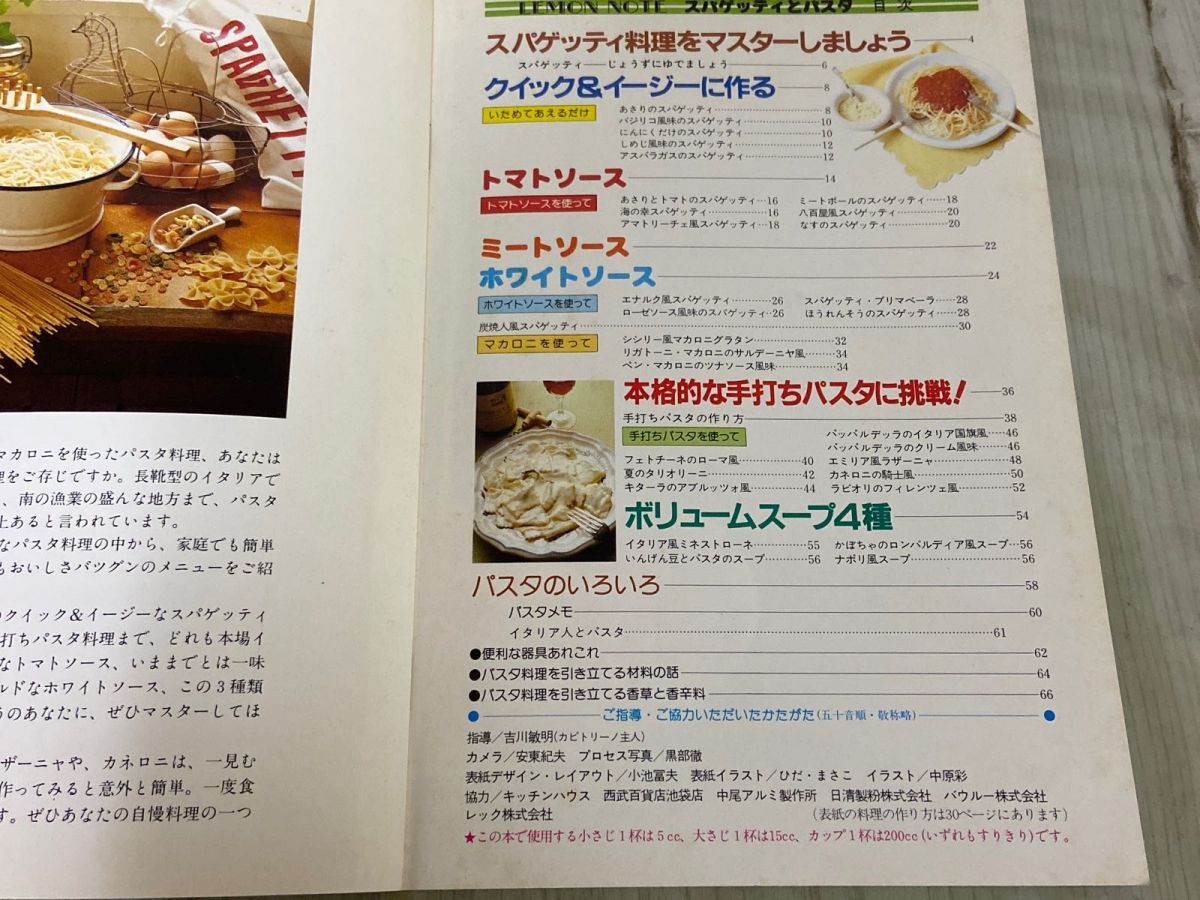 SPAGHETTI
マカロニを使ったパスタ料理、あなたは
理をご存じですか。長靴型のイタリアで
、南の漁業の盛んな地方まで、パスタ
上あると言われています。
なパスタ料理の中から、家庭でも簡単
もおいしさバツグンのメニューをご紹
のクイック&イージーなスパゲッティ
打ちパスタ料理まで、どれも本場イ
なトマトソース、いままでとは一味
ルドなホワイトソース、この3種類
うのあなたに、ぜひマスターしてほ
ザーニャや、カネロニは、一見む
作ってみると意外と簡単。一度食
す。ぜひあなたの自慢料理の一つ
LEMON NOTE スパゲッティとパスタ 目次
スパゲッティ料理をマスターしましょう 4
スパゲッティ――じょうずにゆでましょう 6
クイック&イージーに作る 8
いためてあえるだけ
あさりのスパゲッティ 8
バジリコ風味のスパゲッティ 10
にんにくだけのスパゲッティ 10
しめじ風味のスパゲッティ 12
アスパラガスのスパゲッティ 12
トマトソース 14
トマトソースを使って
あさりとトマトのスパゲッティ…16 ミートボールのスパゲッティ……18
海の幸スパゲッティ……16 八百屋風スパゲッティ……20
アマトリーチェ風スパゲッティ…18 なすのスパゲッティ……20
ミートソース 22
ホワイトソース 24
ホワイトソースを使って
エナルク風スパゲッティ……26 スパゲッティ・プリマベーラ……28
ローゼソース風味のスパゲッティ…26 ほうれんそうのスパゲッティ……28
炭焼人風スパゲッティ……30
マカロニを使って
シシリー風マカロニグラタン……32
リガトーニ・マカロニのサルデーニャ風……34
ペン・マカロニのツナソース風味……34
本格的な手打ちパスタに挑戦! 36
手打ちパスタの作り方 38
手打ちパスタを使って
パッパルデッラのイタリア国旗風……46
パッパルデッラのクリーム風味……46
フェトチーネのローマ風 40 エミリア風ラザーニャ 48
夏のタリオリーニ 42 カネロニの騎士風 50
キターラのアブルッツォ風 44 ラビオリのフィレンツェ風 52
ボリュームスープ4種 54
イタリア風ミネストローネ 55 かぼちゃのロンバルディア風スープ…56
いんげん豆とパスタのスープ 56 ナポリ風スープ 56
パスタのいろいろ 58
パスタメモ 60
イタリア人とパスタ 61
●便利な器具あれこれ 62
●パスタ料理を引き立てる材料の話 64
●パスタ料理を引き立てる香草と香辛料 66
● ご指導・ご協力いただいたかたがた(五十音順・敬称略) ●
指導/吉川敏明(カピトリーノ主人)
カメラ/安東紀夫 プロセス写真/黒部徹
表紙デザイン・レイアウト/小池冨夫 表紙イラスト/ひだ・まさこ イラスト/中原彩
協力/キッチンハウス 西武百貨店池袋店 中尾アルミ製作所 日清製粉株式会社 バウルー株式会社
レック株式会社 (表紙の料理の作り方は30ページにあります)
★この本で使用する小さじ1杯は5cc、大さじ1杯は15cc、カップ1杯は200cc(いずれもすりきり)です。